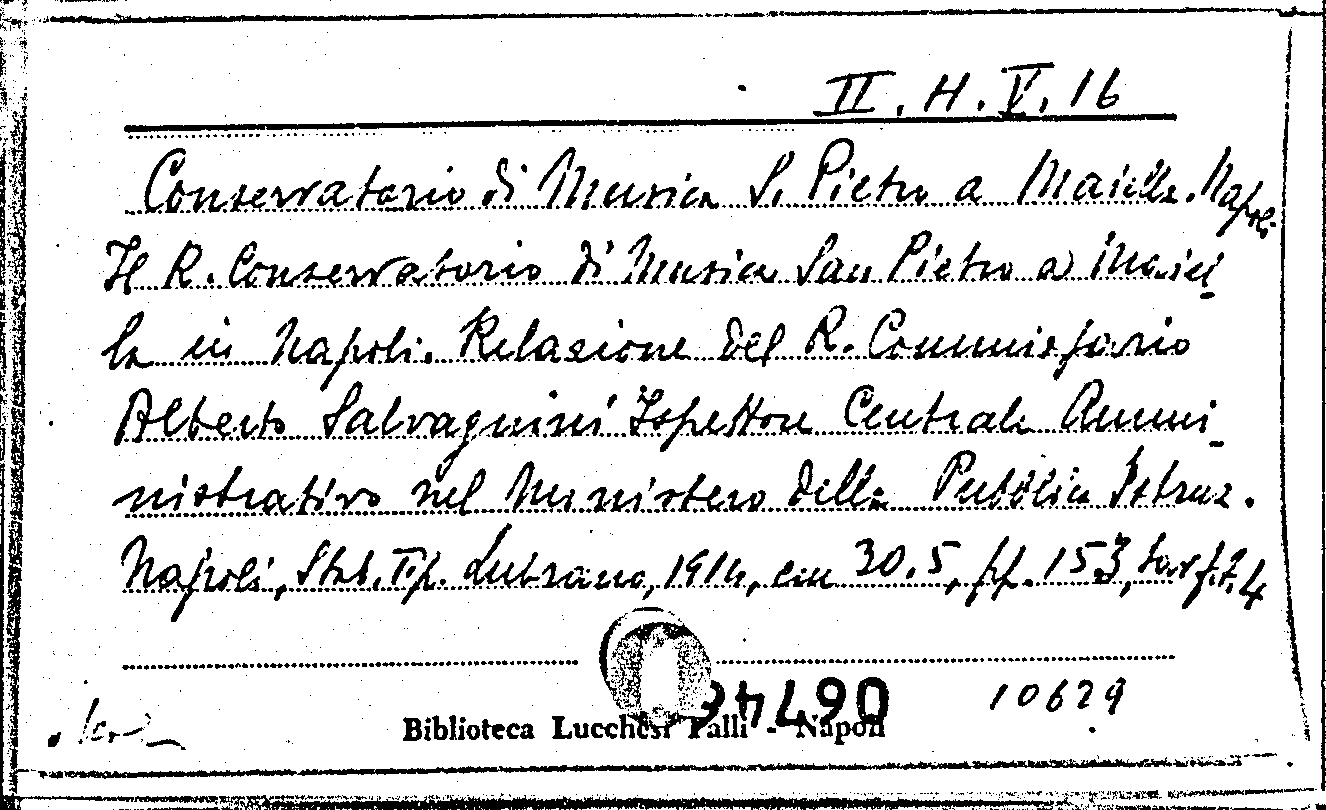 II. H. V. 16
Conservatorio di Musica S. Pietro a Maiella. Napoli
Il R. Conservatorio di Musica San Pietro a Maiel-
la in Napoli. Relazione del R. Commissario
Alberto Salvagnini Ispettore Centrale Ammi-
nistrativo nel Ministero della Pubblica Istruz.
Napoli, Stab. Tip. Lubrano, 1914, cm 30.5, pp. 153, tav. f.t. 4
10629
Biblioteca Lucchesi Palli - Napoli